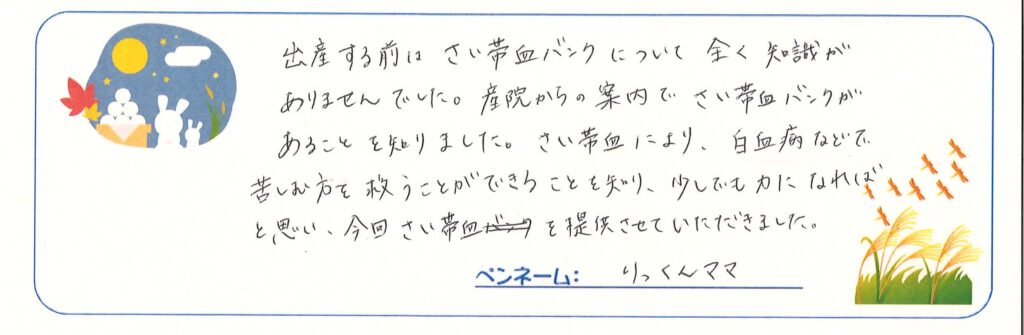 出産する前は さい帯血バンク について 全く 知識が
ありませんでした。産院からの案内で さい帯血バンクが
あることを知りました。さい帯血により、白血病などで
苦しむ方を 救うことができることを知り、少しでも力になれば
と思い、今回 さい帯血バンクを提供させていただきました。
ペンネーム: りっくんママ